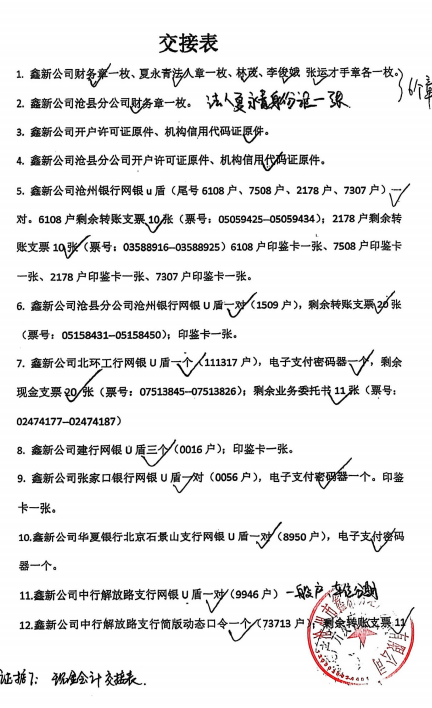 交接表
1. 鑫新公司财务章一枚、夏永青法人章一枚、林茂、李俊娥 张运才手章各一枚。
6个章
2. 鑫新公司沧县分公司财务章一枚。 法人夏永青身份证一张
3. 鑫新公司开户许可证原件、机构信用代码证原件。
4. 鑫新公司沧县分公司开户许可证原件、机构信用代码证原件。
5. 鑫新公司沧州银行网银 u 盾（尾号 6108 户、7508 户、2178 户、7307 户）一
对。6108 户剩余转账支票 10 张（票号：05059425--05059434）；2178 户剩余转
账支票 10 张（票号：03588916--03588925）6108 户印鉴卡一张、7508 户印鉴卡
一张、2178 户印鉴卡一张、7307 户印鉴卡一张。
6. 鑫新公司沧县分公司沧州银行网银 U 盾一对（1509 户），剩余转账支票 20 张
（票号：05158431--05158450）；印鉴卡一张。
7. 鑫新公司北环工行网银 U 盾一个（111317 户），电子支付密码器一个，剩余
现金支票 20 张（票号：07513845--07513826）；剩余业务委托书 11 张（票号：
02474177--02474187）
8. 鑫新公司建行网银 U 盾三个（0016 户）；印鉴卡一张。
9. 鑫新公司张家口银行网银 U 盾一对（0056 户），电子支付密码器一个。印鉴
卡一张。
10.鑫新公司华夏银行北京石景山支行网银 U 盾一对（8950 户），电子支付密码
器一个。
11.鑫新公司中行解放路支行网银 U 盾一对（9946 户） 一般户
12.鑫新公司中行解放路支行简版动态口令一个（73713 户）；剩余转账支票 11
有限公司
证据7： 现金会计交接表.